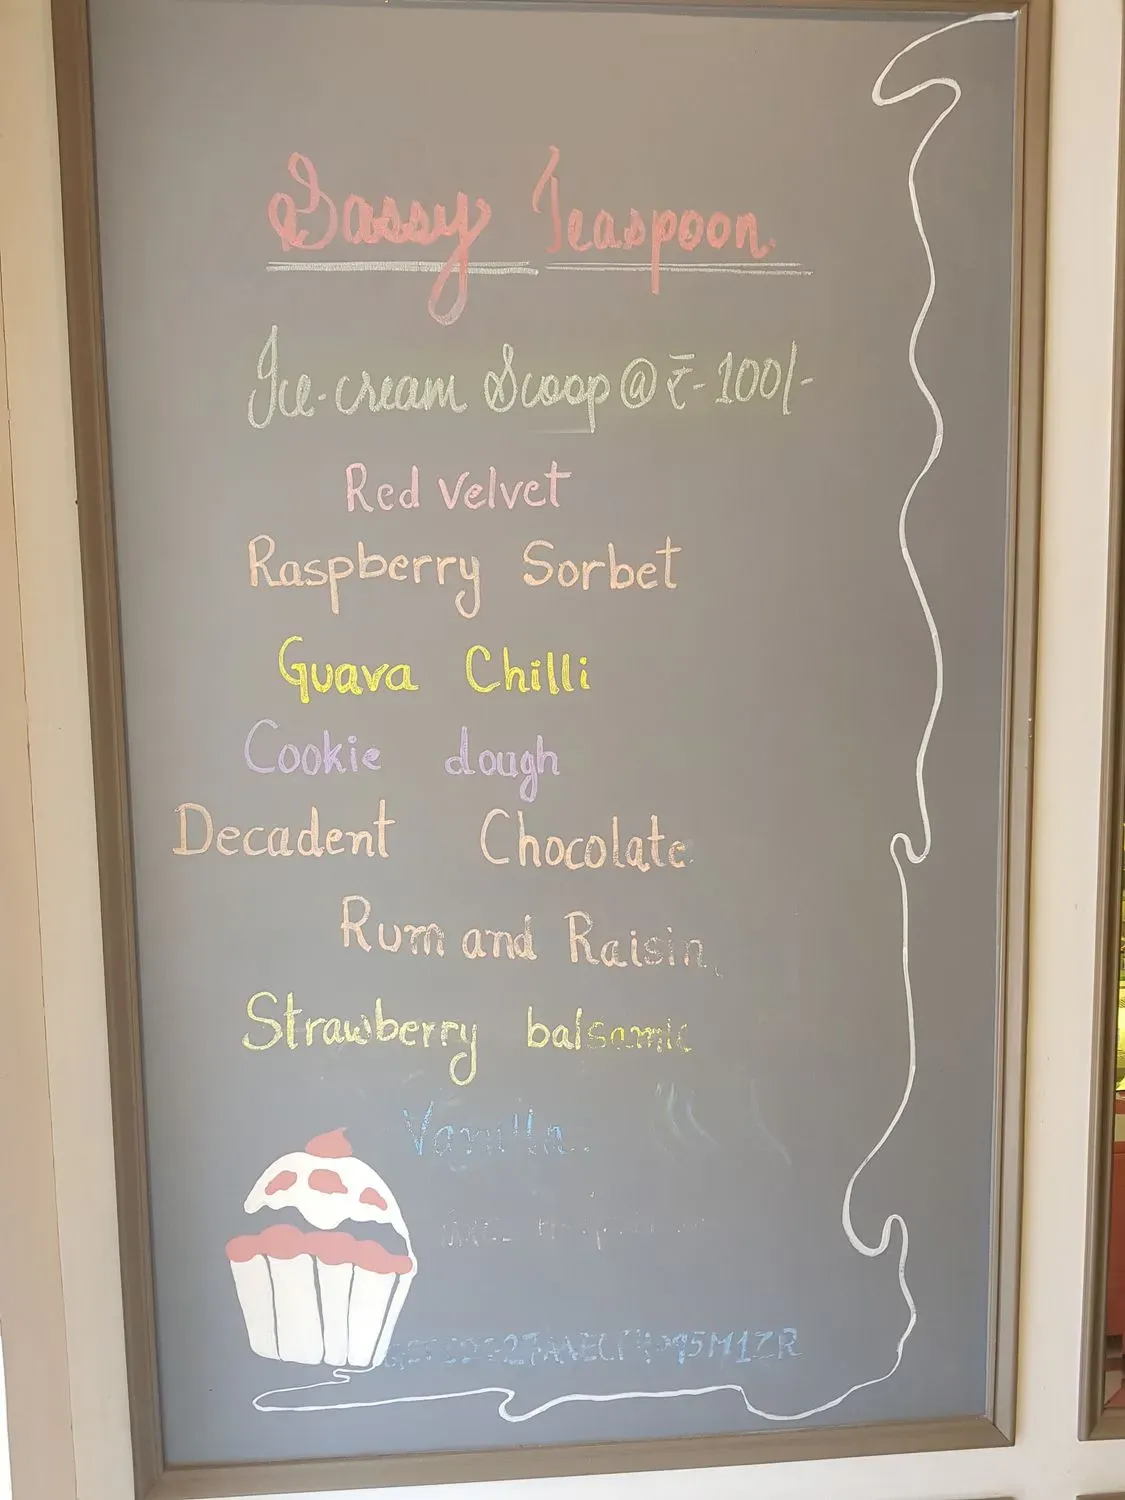 Sassy Teaspoon
Ice-cream Scoop @ ₹-100/-
Red velvet
Raspberry Sorbet
Guava Chilli
Cookie dough
Decadent Chocolate
Rum and Raisin
Strawberry balsamic
Vanilla